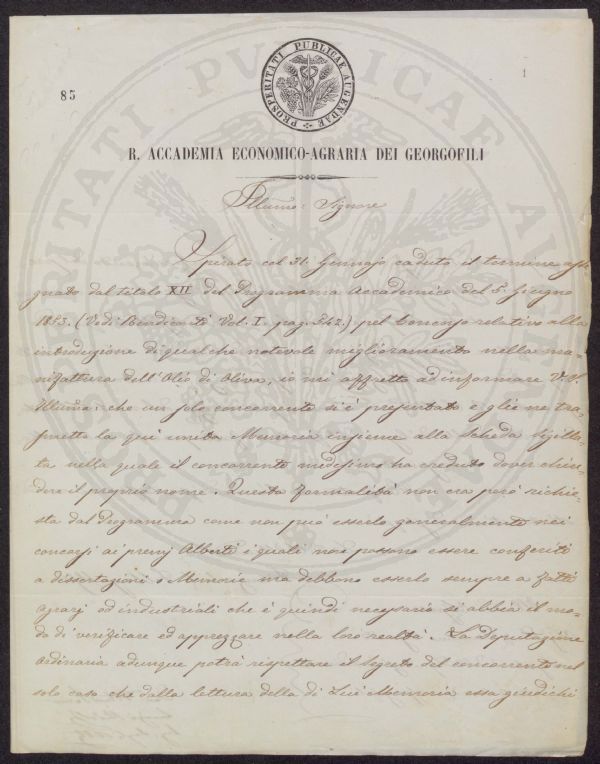 1
85
PROSPERITATI PUBLICAE AUGENDAE
R. ACCADEMIA ECONOMICO-AGRARIA DEI GEORGOFILI
Illumo: Signore
Spirato col 31. Gennajo caduto il termine asse-
gnato dal titolo XII del Programma Accademico del 5. Giugno
1853. (Vedi Rendiconti Vol. I. pag. 342.) pel Concorso relativo alla
introduzione di qualche notevole miglioramento nella ma-
nifattura dell'Olio di Oliva, io mi affretto ad informare V. S.
Illuma: che un solo concorrente si è presentato e glie ne tra-
smetto la quì unita Memoria insieme alla scheda sigilla-
ta nella quale il concorrente medesimo ha creduto dover chiu-
dere il proprio nome. Questa formalità non era però richie-
sta dal Programma come non può esserlo generalmente nei
concorsi ai premj Alberti i quali non possono essere conferiti
a dissertazioni o Memorie ma debbono esserlo sempre a fatti
agrarj od industriali che è quindi necessario si abbia il mo-
do di verificare ed apprezzare nella loro realtà. La Deputazione
ordinaria adunque potrà rispettare il segreto del concorrente nel
solo caso che dalla lettura della di Lui Memoria essa giudichi